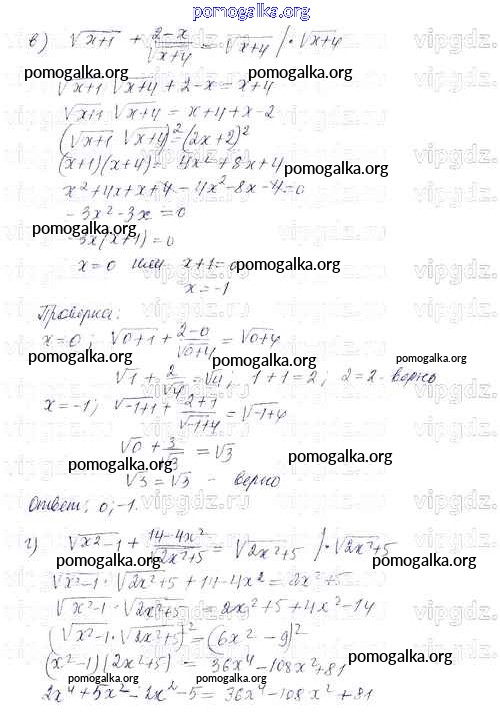 pomogalka.org
в) √(x+1) + (2-x)/√(x+4) = √(x+4) / · √(x+4)
pomogalka.org pomogalka.org
√(x+1) √(x+4) + 2-x = x+4
√(x+1) √(x+4) = x+4+x-2
pomogalka.org pomogalka.org
(√(x+1) √(x+4))² = (2x+2)²
(x+1)(x+4) = 4x² + 8x+4
pomogalka.org
x²+4x+x+4-4x²-8x-4=0
-3x²-3x=0
pomogalka.org pomogalka.org
-3x(x+1)=0
x=0 или x+1=0 pomogalka.org
x=-1
Проверка:
x=0; √(0+1) + (2-0)/√(0+4) = √(0+4)
pomogalka.org pomogalka.org pomogalka.org
√1 + 2/√4 = √4; 1+1=2; 2=2 - верно
x=-1; √(-1+1) + (2+1)/√(-1+4) = √(-1+4)
pomogalka.org pomogalka.org
√0 + 3/√3 = √3
pomogalka.org pomogalka.org
√3 = √3 - верно
Ответ: 0; -1.
г) √(x²-1) + (14-4x²)/√(2x²+5) = √(2x²+5) / · √(2x²+5)
pomogalka.org pomogalka.org pomogalka.org
√(x²-1) · √(2x²+5) + 14-4x² = 2x²+5
√(x²-1) · √(2x²+5) = 2x²+5+4x²-14
pomogalka.org pomogalka.org
(√(x²-1) · √(2x²+5))² = (6x²-9)²
(x²-1)(2x²+5) = 36x⁴-108x²+81
pomogalka.org pomogalka.org pomogalka.org
2x⁴+5x²-2x²-5=36x⁴-108x²+81